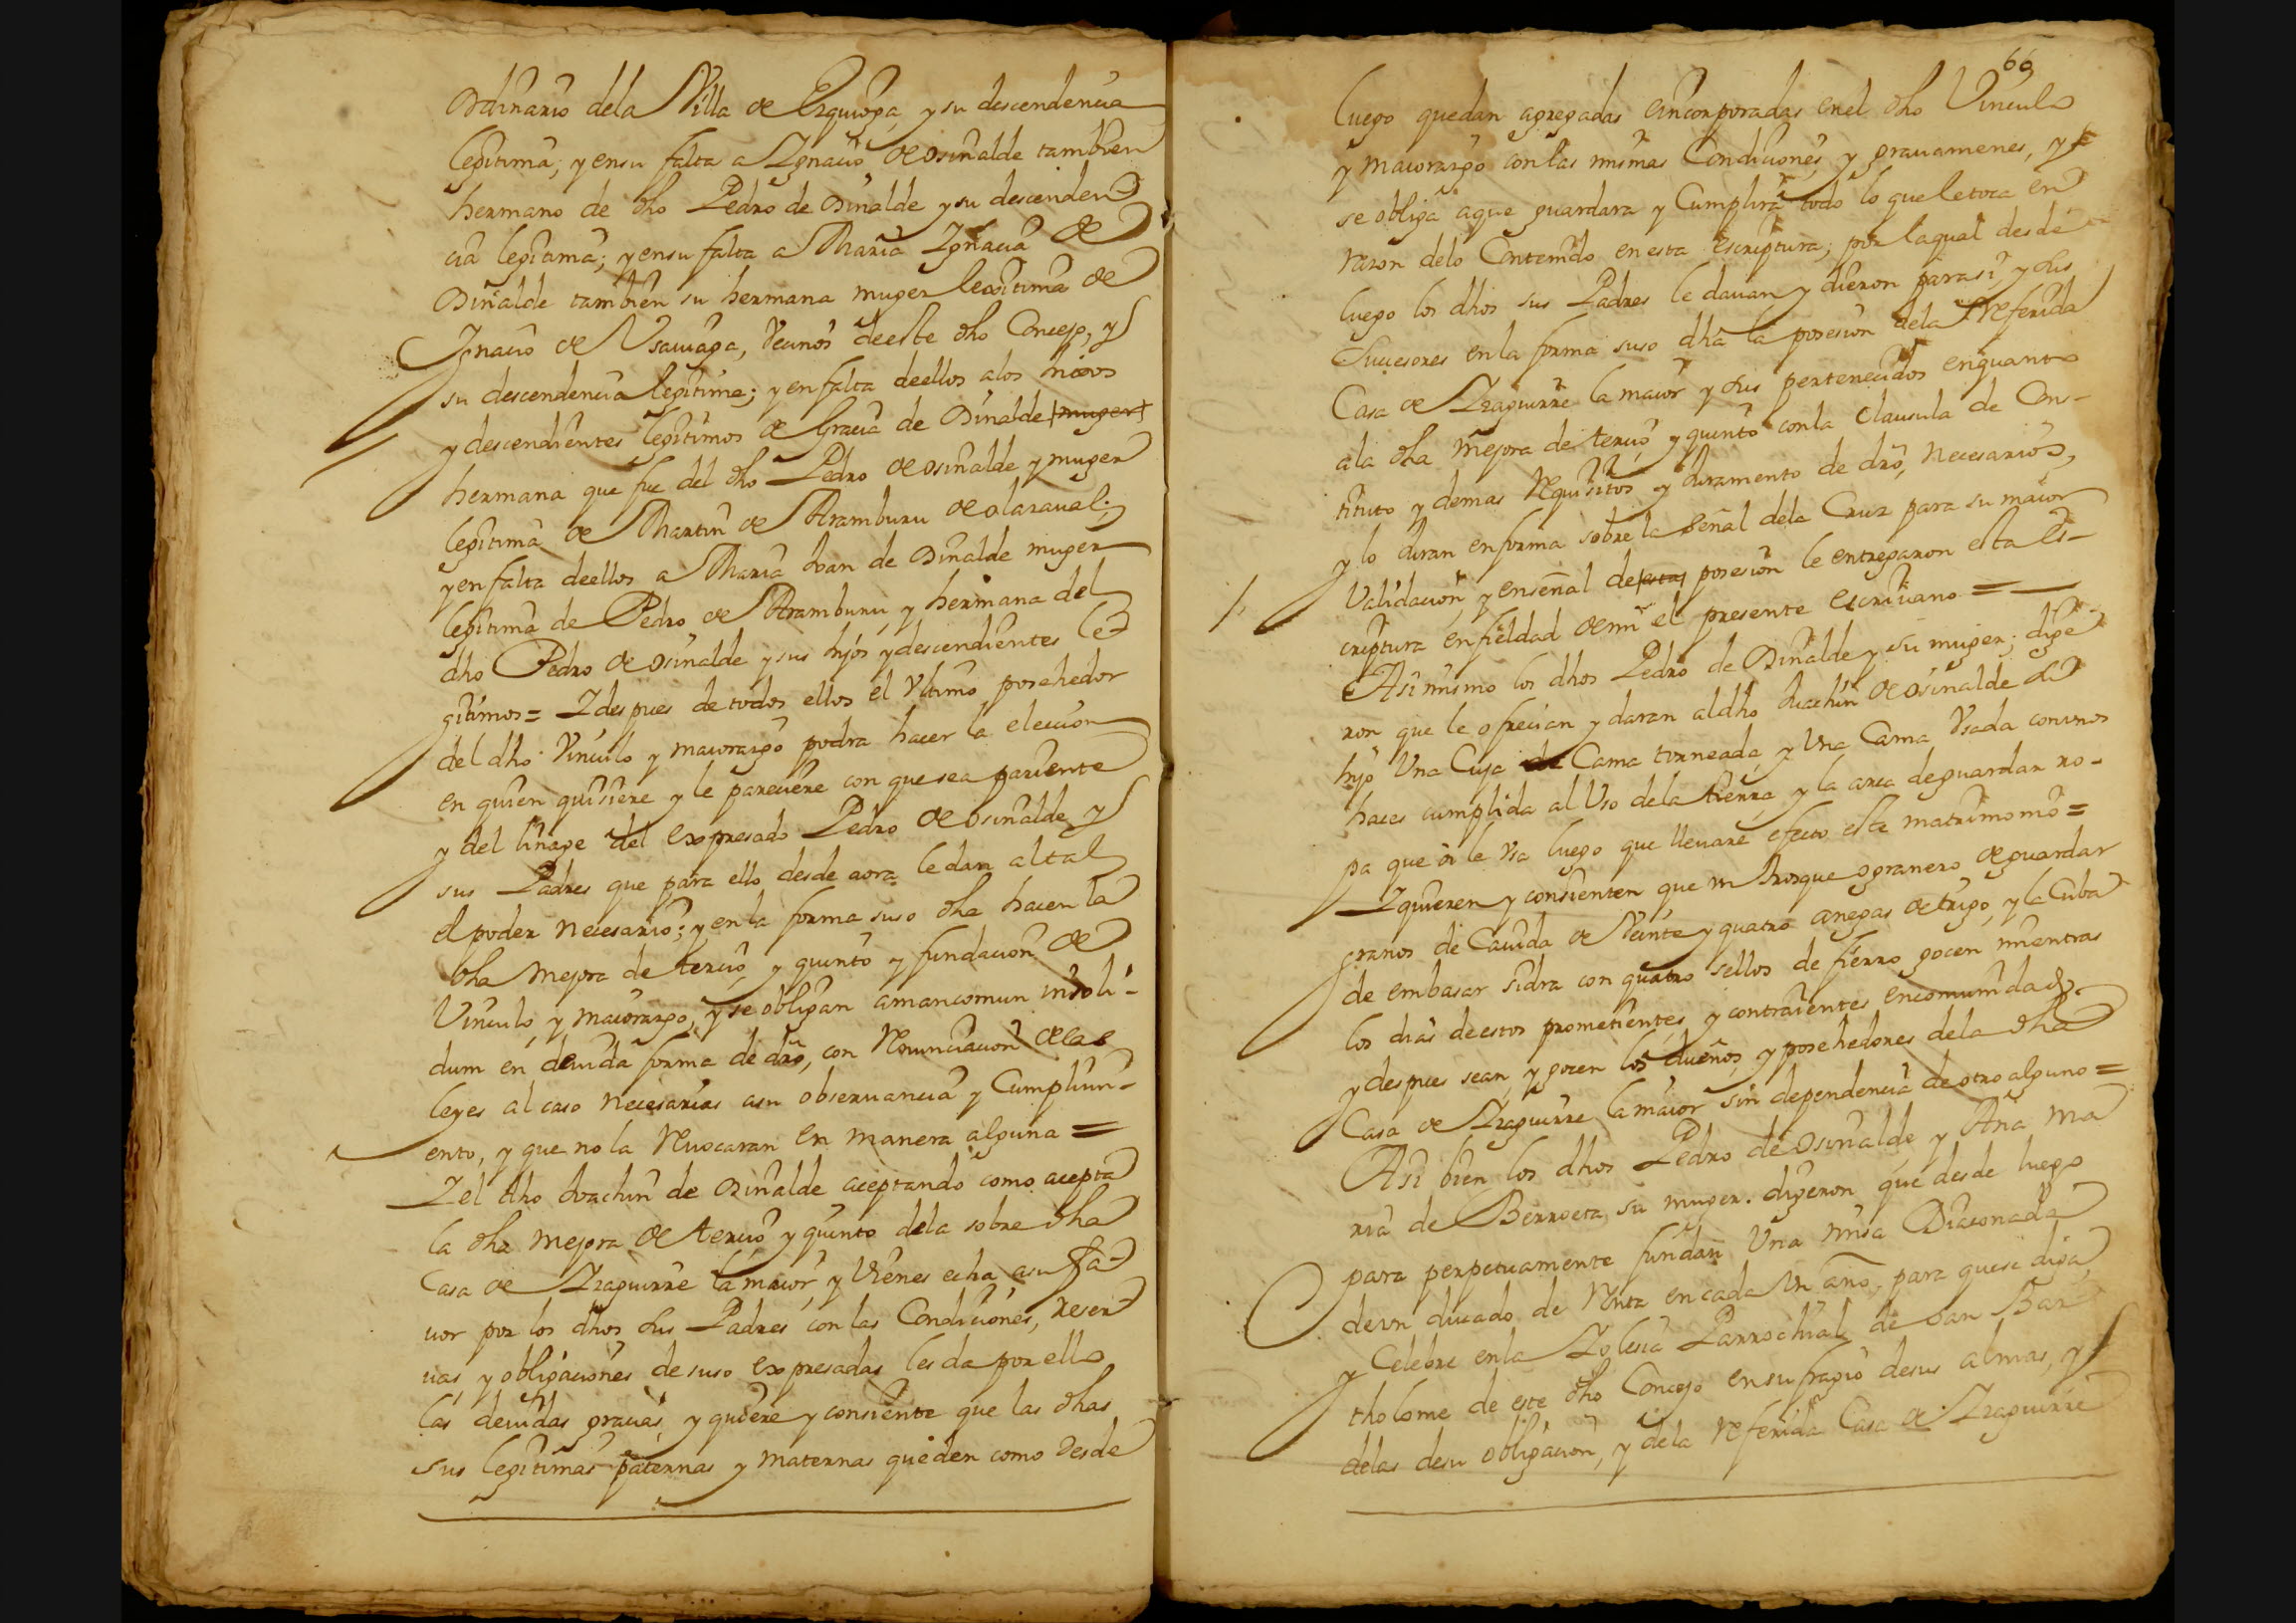 Ordinario dela Villa de Ezquioga, y su descendencia
legitima; y ensu falta a Ygnacio de osinalde tambien
hermano de dho Pedro de Osinalde y su descenden
cia legitima; y ensu falta a Maria Ygnacia de
Osinalde tambien su hermana muger legitima de
Ignacio de Vsauiaga, Vecinos deeste dho Concejo, y
su descendencia legitima; y en falta deellos alos hijos
y descendientes legitimos de Gracia de Osinalde muger
hermana que fue del dho Pedro de osinalde y muger
legitima de Martin de Aramburu de olaraual;
y en falta deellos a Maria Juan de Osinalde muger
legitima de Pedro de Aramburu, y hermana del
dho Pedro de osinalde y sus hijos y descendientes le
gitimos = Y despues de todos ellos el Vltimo posehedor
del dho Vinculo y maiorazgo podra hacer la eleccion
en quien quisiere y le pareciere con que sea pariente
y del linage del expresado Pedro de osinalde y
sus Padres que para ello desde aora le dan al tal
el poder necesario; y en la forma suso dha hacen la
dha mejora de tercio, y quinto y fundacion de
Vinculo, y maiorazgo, y se obligan amancomun insoli-
dum en deuida forma de dro, con Renunciacion delas
leyes al caso necesarias asu obseruancia y Cumplimi-
ento, y que no la Reuocaran en manera alguna =
Y el dho Joachin de Osinalde aceptando como acepta
la dha mejora de tercio y quinto dela sobre dha
Casa de Yzaguirre la maior, y Vienes echa asu fa
uor por los dhos sus Padres con las Condiciones, reser
uas, y obligaciones de suso expresadas les da por ello
las deuidas gracias, y quiere y consiente que las dhas
sus legitimas paternas y maternas queden como desde
69
luego quedan agregadas eincorporadas enel dho Vinculo
y maiorazgo con las mismas Condiciones, y grauamenes, y
se obliga aque guardara y Cumplira todo lo que le toca en
razon delo Contenido en esta escriptura; por la qual desde
luego los dhos sus Padres le dauan y dieron para si, y sus
Succesores en la forma suso dha la posesion dela Referida
Casa de Yzaguirre la maior y sus pertenecidos enquanto
ala dha mejora de tercio, y quinto con la clausula de Cons-
tituto y demas Requisitos y Juramento de dro, necesarios,
y lo Juran en forma sobre la señal dela Cruz para su maior
Validacion, y en señal de esta posesion le entregaron esta Es-
criptura en fieldad de mi el presente escriuano =
Asi mismo los dhos Pedro de Osinalde y su muger; dige
ron que le ofrecian y daran aldho Joachin de osinalde su
hijo Vna Cuja de Cama torneada, y Vna Cama Vsada con vnos
haces cumplida al Vso dela tierra, y la arca de guardar ro-
pa que oi le Vsa luego que lleuare efecto este matrimonio =
Y quieren y consienten que vn trosque o granero de guardar
granos de Cauida de Veinte y quatro anegas de trigo, y la Cuba
de embasar sidra con quatro sellos de fierro gocen mientras
los dias de estos prometientes, y contraientes encomunidad,
y despues sean, y gocen los dueños, y posehedores dela dha
Casa de Yzaguirre la maior sin dependencia de otro alguno =
Asi bien los dhos Pedro de osinalde y Ana Ma
ria de Berroeta su muger. digeron que desde luego
para perpetuamente fundan Vna misa Diaconada
de vn ducado de Renta en cada Vn año, para que se diga,
y Celebre en la Yglesia Parrochial de San Bar
tholome de este dho Concejo en sufragio de sus almas, y
delas desu obligacion, y dela referida Casa de Yzaguirre